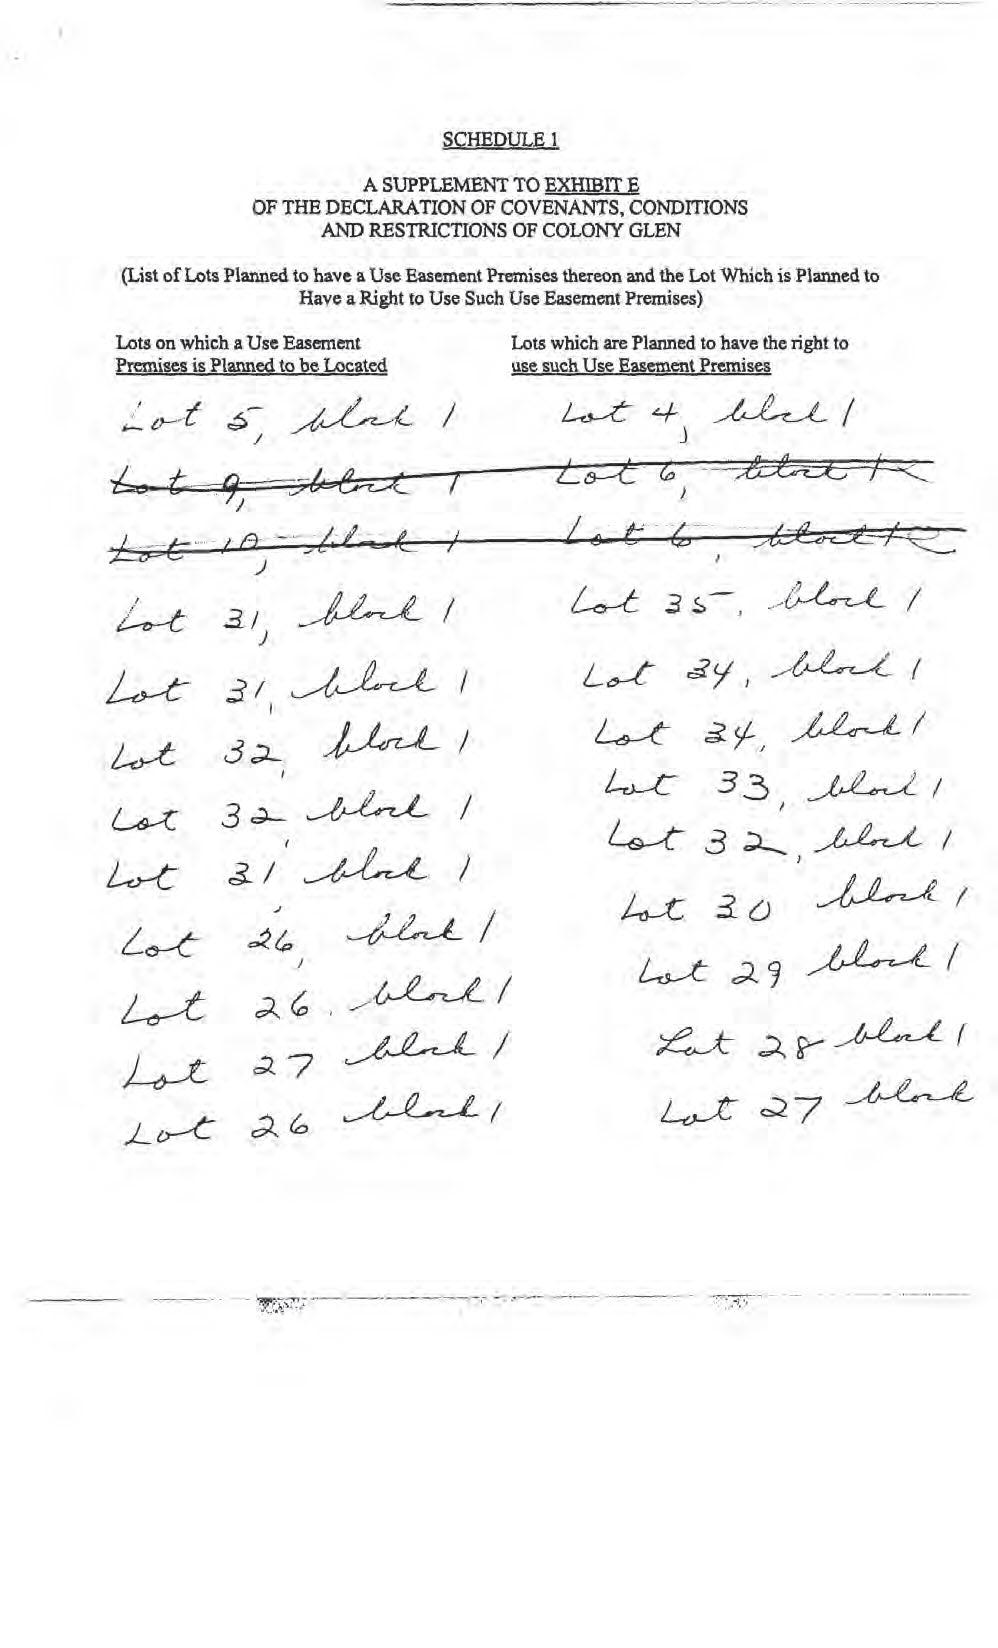 SCHEDULE 1
A SUPPLEMENT TO EXHIBIT E
OF THE DECLARATION OF COVENANTS, CONDITIONS
AND RESTRICTIONS OF COLONY GLEN
(List of Lots Planned to have a Use Easement Premises thereon and the Lot Which is Planned to
Have a Right to Use Such Use Easement Premises)
Lots on which a Use Easement Lots which are Planned to have the right to
Premises is Planned to be Located use such Use Easement Premises
Lot 5, block 1 Lot 4, block 1
Lot 9, block 1 Lot 6, block 1
Lot 10, block 1 Lot 6, block 1
Lot 31, block 1 Lot 35, block 1
Lot 31, block 1 Lot 34, block 1
Lot 32, block 1 Lot 34, block 1
Lot 32, block 1 Lot 33, block 1
Lot 31, block 1 Lot 32, block 1
Lot 26, block 1 Lot 30 block 1
Lot 26, block 1 Lot 29 block 1
Lot 27 block 1 Lot 28 block 1
Lot 26 block 1 Lot 27 block